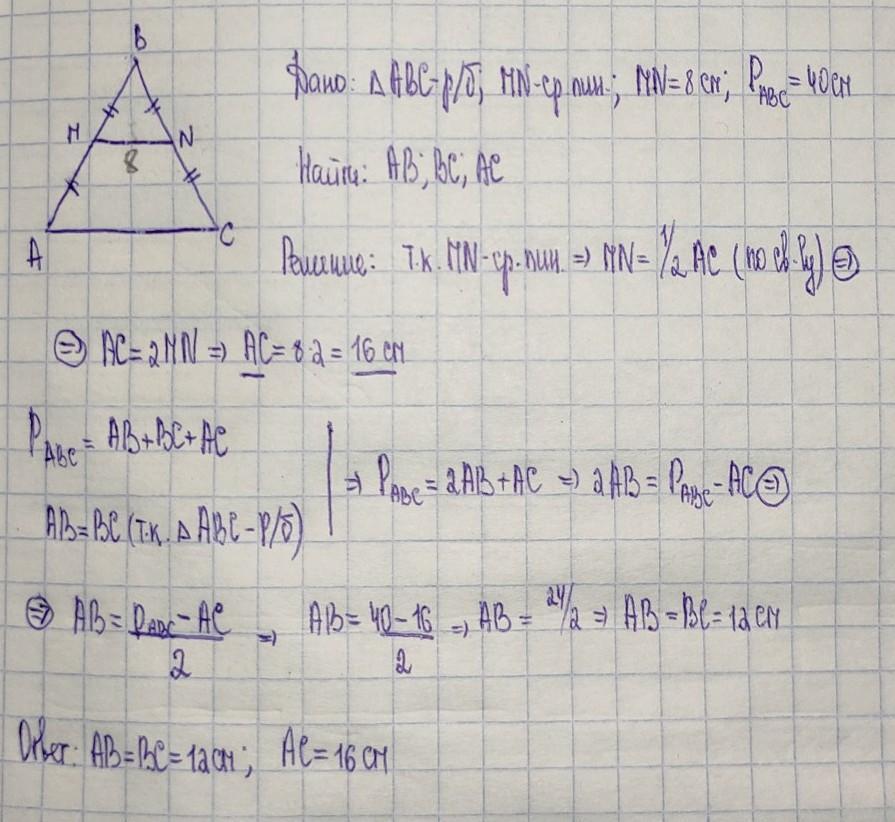 B
M N
8
A C
Дано: △ABC-р/б; MN-ср.лин.; MN=8см; P_ABC=40см
Найти: AB; BC; AC
Решение: т.к. MN-ср.лин. ⇒ MN=1/2 AC (по св-ву) ⇒
⇒ AC=2MN ⇒ AC=8·2=16 см
P_ABC= AB+BC+AC
AB=BC (т.к. △ABC-р/б)
⇒ P_ABC=2AB+AC ⇒ 2AB=P_ABC-AC ⇒
⇒ AB=(P_ABC-AC)/2 ⇒ AB=(40-16)/2 ⇒ AB=24/2 ⇒ AB=BC=12см
Ответ: AB=BC=12см; AC=16см